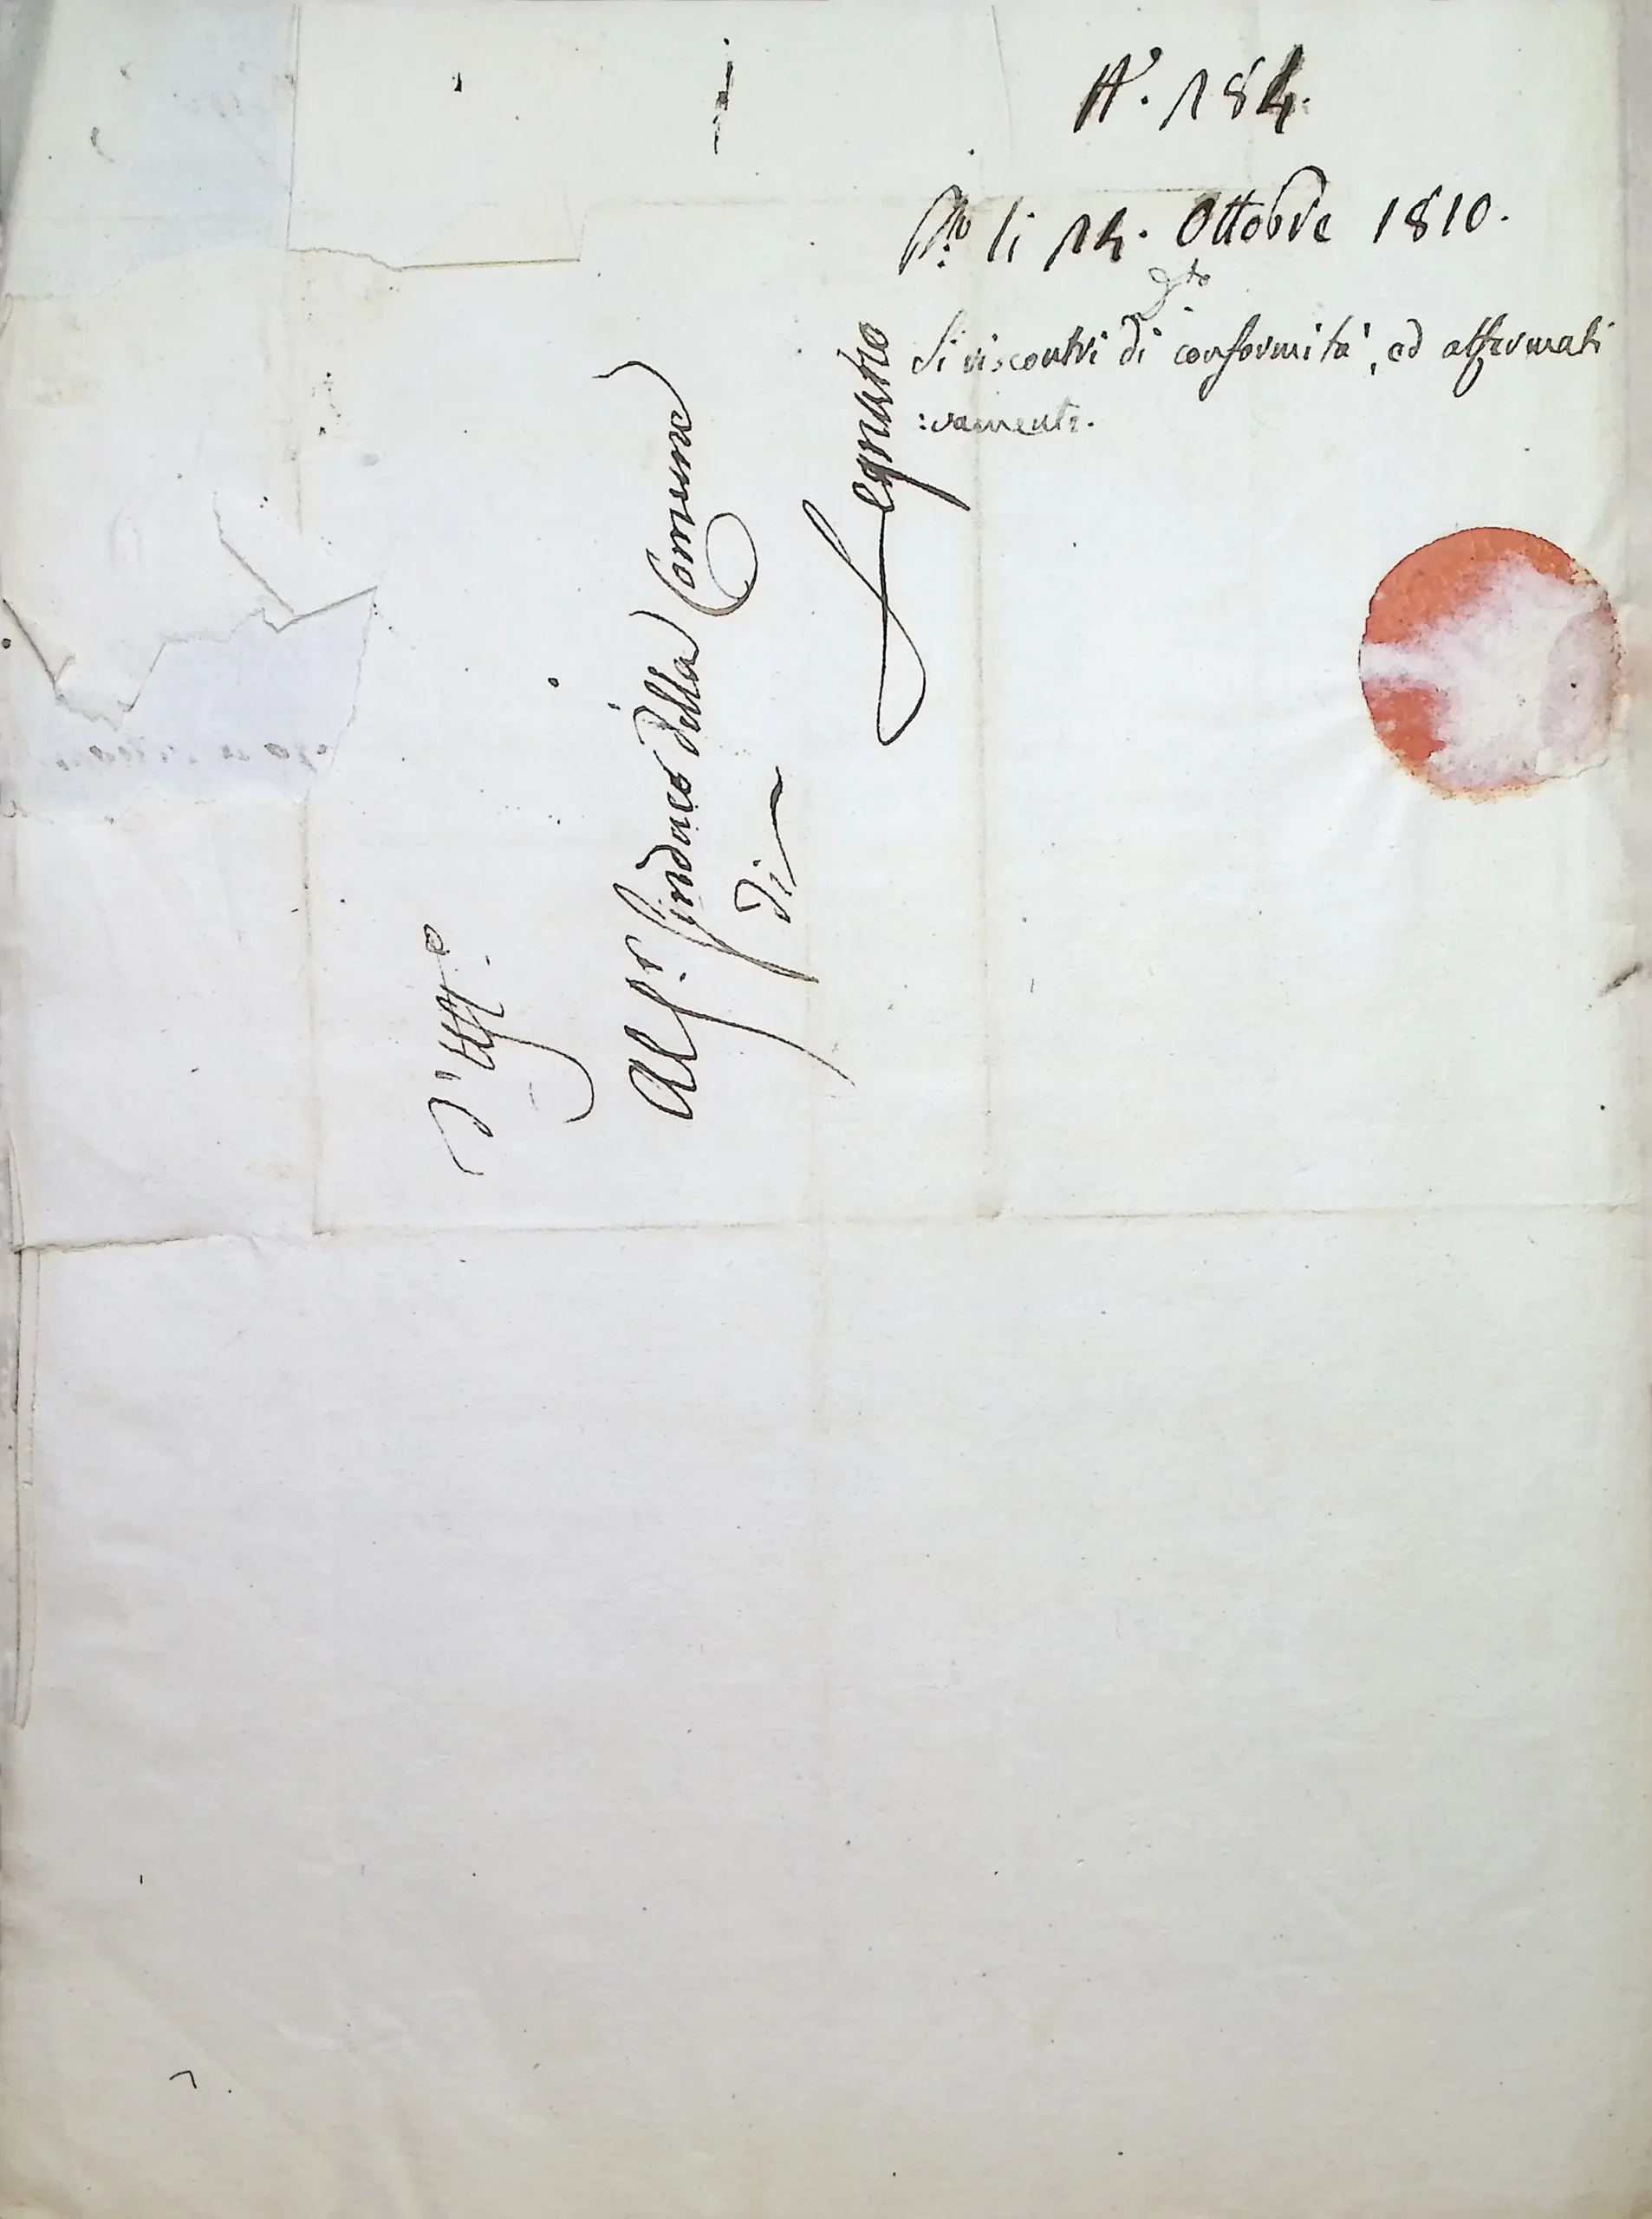 N.° 184.
P.to li 14. Ottobre 1810.
d.to
Si riscontri di conformità, ed affermati
:vamente.
D'Uff.o
Al S.r Sindaco della Comune
di
Legnaro